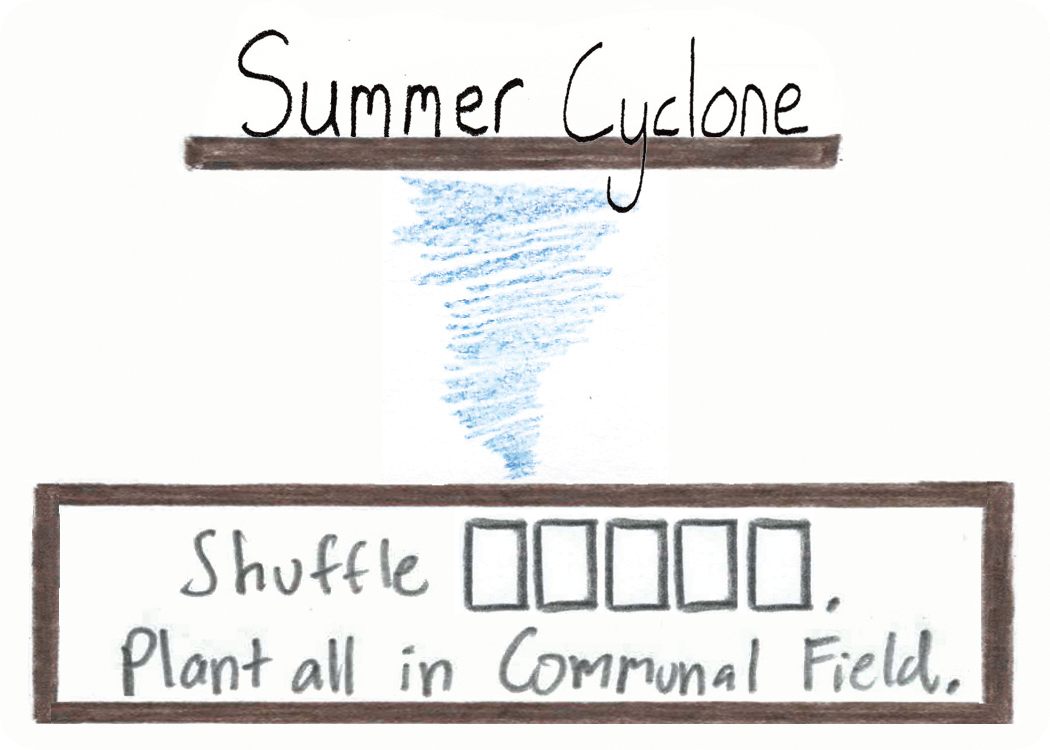 Summer Cyclone
Shuffle □□□□□.
Plant all in Communal Field.